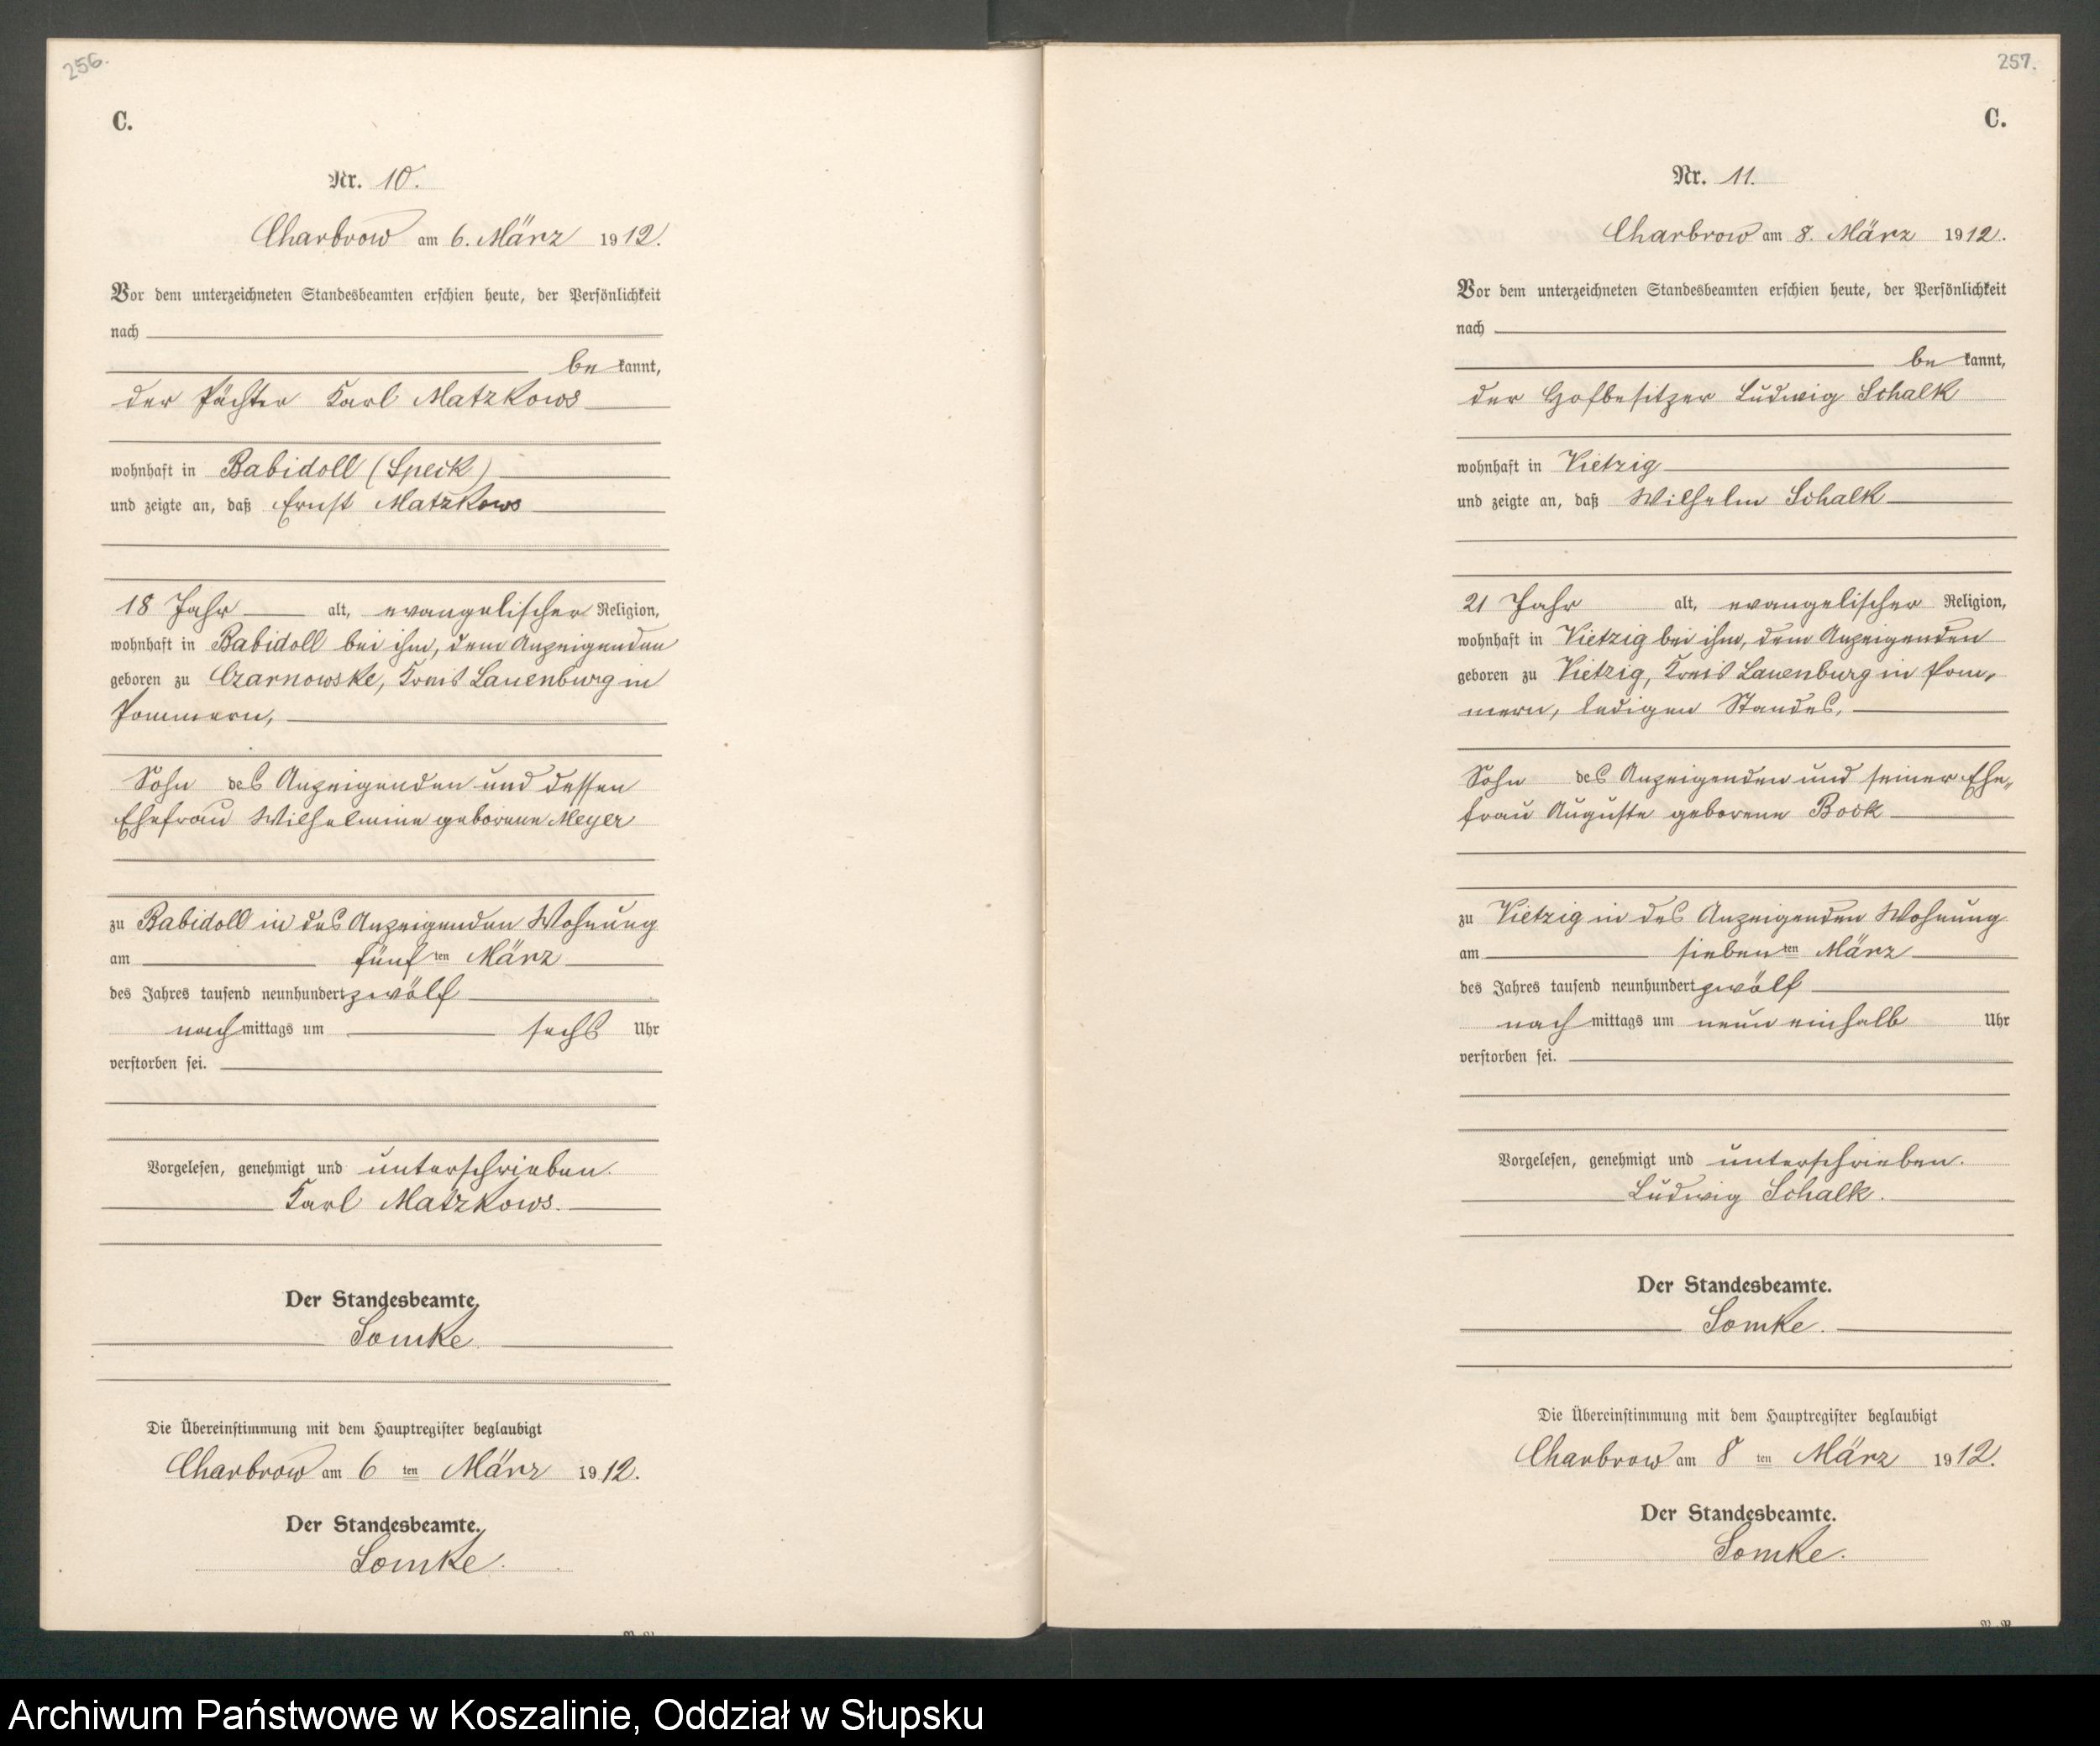 256.
C.
Nr. 10.
Charbrow am 6. März 1912.
Vor dem unterzeichneten Standesbeamten erschien heute, der Persönlichkeit
nach
be kannt,
der Pächter Karl Matzkows
wohnhaft in Babidoll (Speck)
und zeigte an, daß Ernst Matzkows
18 Jahr alt, evangelischer Religion,
wohnhaft in Babidoll bei ihm, dem Anzeigenden
geboren zu Czarnowske, Kreis Lauenburg in
Pommern,
Sohn des Anzeigenden und dessen
Ehefrau Wilhelmine geborene Meyer
zu Babidoll in des Anzeigenden Wohnung
am fünf ten März
des Jahres tausend neunhundert zwölf
nach mittags um sechs Uhr
verstorben sei.
Vorgelesen, genehmigt und unterschrieben.
Karl Matzkows.
Der Standesbeamte.
Lomke
Die Übereinstimmung mit dem Hauptregister beglaubigt
Charbrow am 6 ten März 1912.
Der Standesbeamte.
Lomke.
257.
C.
Nr. 11.
Charbrow am 8. März 1912.
Vor dem unterzeichneten Standesbeamten erschien heute, der Persönlichkeit
nach
be kannt,
der Hofbesitzer Ludwig Schalk
wohnhaft in Vietzig
und zeigte an, daß Wilhelm Schalk
21 Jahr alt, evangelischer Religion,
wohnhaft in Vietzig bei ihm, dem Anzeigenden
geboren zu Vietzig, Kreis Lauenburg in Pom-
mern, ledigen Standes,
Sohn des Anzeigenden und seiner Ehe„
frau Auguste geborene Bock
zu Vietzig in des Anzeigenden Wohnung
am sieben ten März
des Jahres tausend neunhundert zwölf
nach mittags um neun einhalb Uhr
verstorben sei.
Vorgelesen, genehmigt und unterschrieben.
Ludwig Schalk.
Der Standesbeamte.
Lomke.
Die Übereinstimmung mit dem Hauptregister beglaubigt
Charbrow am 8 ten März 1912.
Der Standesbeamte.
Lomke.
Archiwum Państwowe w Koszalinie, Oddział w Słupsku